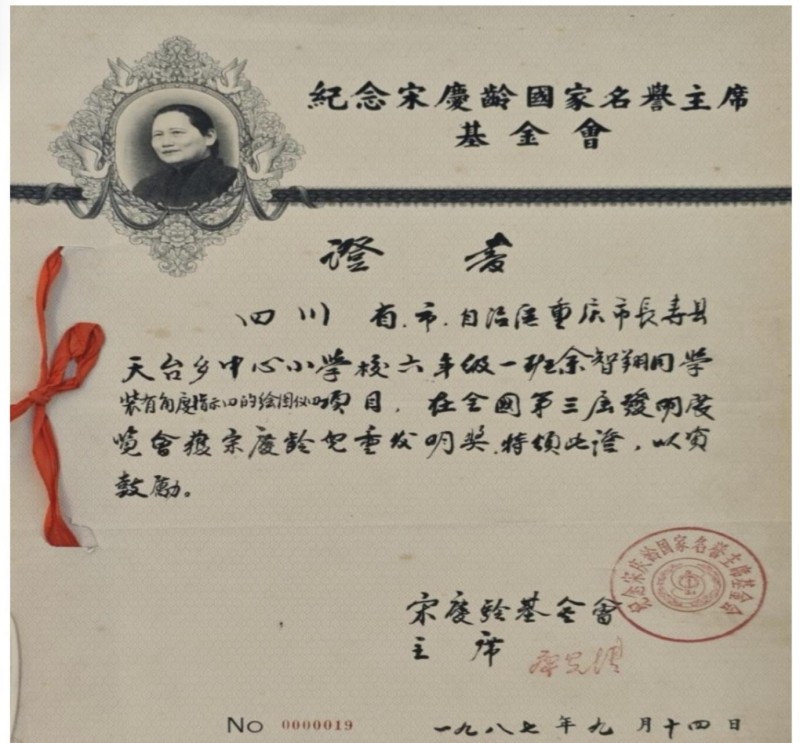 紀念宋慶齡國家名譽主席
基金會
證書
四川省.市.自治區重庆市長寿县
天台乡中心小學校六年级一班余智翔同学
装有角度指示的绘图仪的项目，在全國第三届發明展
览會獲宋慶龄兒童发明奖.特頒此證，以資
鼓励。
纪念宋庆龄国家名誉主席基金会
宋慶齡基金會
主席
No 0000019 一九八七年九月十四日